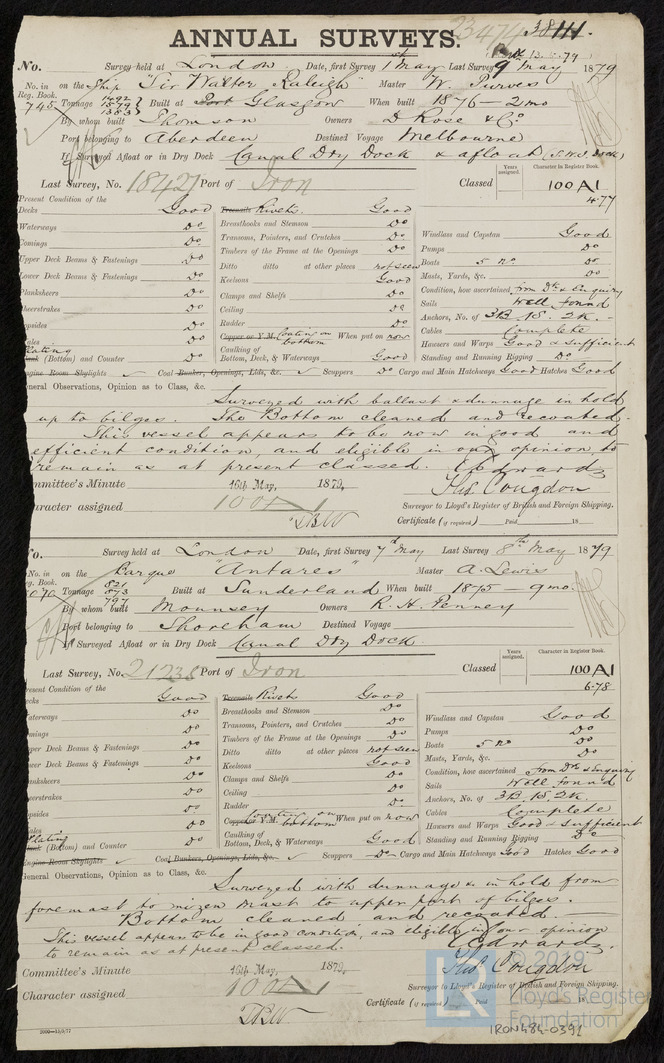 23474 38111.
ANNUAL SURVEYS.
No. Survey held at London Date, first Survey 1st May Last Survey 9th May 1879
No. in Reg. Book. on the Ship "Sir Walter Raleigh" Master W. Purves
745 Tonnage 1492 1579 1383 Built at Port Glasgow When built 1876 - 2mo
By whom built Thomson Owners D Rose & Co
Port belonging to Aberdeen Destined Voyage Melbourne
If Surveyed Afloat or in Dry Dock Canal Dry Dock & afloat (S.W.I. Dock)
Last Survey, No. 18421 Port of Iron Classed Years assigned. Character in Register Book. 100 A1
4.77
Present Condition of the
Decks Good
Waterways Do
Comings Do
Upper Deck Beams & Fastenings Do
Lower Deck Beams & Fastenings Do
Planksheers Do
Sheerstrakes Do
Topsides Do
Wales Do
Plating
(Bottom) and Counter Do
Engine Room Skylights
Treenails Rivets Good
Breasthooks and Stemson Do
Transoms, Pointers, and Crutches Do
Timbers of the Frame at the Openings Do
Ditto ditto at other places not seen
Keelsons Good
Clamps and Shelfs Do
Ceiling Do
Rudder Do
Copper or Y.M. Coating on bottom When put on now
Caulking of Bottom, Deck, & Waterways Good
Coal Bunker, Openings, Lids, &c. Scuppers Do
Windlass and Capstan Good
Pumps Do
Boats 5 No. Do
Masts, Yards, &c. Do
Condition, how ascertained from Dk & Enquiry
Sails Well found
Anchors, No. of 3B. 1S. 2K.
Cables Complete
Hawsers and Warps Good & sufficient
Standing and Running Rigging Do
Cargo and Main Hatchways Good Hatches Good
General Observations, Opinion as to Class, &c.
Surveyed with ballast & dunnage in hold
up to bilges. The Bottom cleaned and recoated.
This vessel appears to be now in good and
efficient condition, and eligible in our opinion to
remain as at present classed. C Edwards
Committee's Minute 16th May, 1879, Thos. Congdon
Character assigned 100 A1 Surveyor to Lloyd's Register of British and Foreign Shipping.
Certificate (if required) Paid 18
No. Survey held at London Date, first Survey 7th May Last Survey 8th May 1879
No. in Reg. Book. on the Barque "Antares" Master A. Lewis
Tonnage 821 873 797 Built at Sunderland When built 1875 - 9mo.
By whom built Mounsey Owners R. H. Penney
Port belonging to Shoreham Destined Voyage
If Surveyed Afloat or in Dry Dock Canal Dry Dock.
Last Survey, No. 21238 Port of Iron Classed Years assigned. Character in Register Book. 100 A1
6.78
Present Condition of the
Decks Good
Waterways Do
Comings Do
Upper Deck Beams & Fastenings Do
Lower Deck Beams & Fastenings Do
Planksheers Do
Sheerstrakes Do
Topsides Do
Wales Do
Plating
(Bottom) and Counter Do
Engine Room Skylights
Treenails Rivets Good
Breasthooks and Stemson Do
Transoms, Pointers, and Crutches Do
Timbers of the Frame at the Openings Do
Ditto ditto at other places not seen
Keelsons Good
Clamps and Shelfs Do
Ceiling Do
Rudder Do
Copper or Y.M. Coating on bottom When put on now
Caulking of Bottom, Deck, & Waterways Good
Coal Bunkers, Openings, Lids, &c. Scuppers Do
Windlass and Capstan Good
Pumps Do
Boats 5 No Do
Masts, Yards, &c. Do
Condition, how ascertained from Dk & Enquiry
Sails Well found
Anchors, No. of 3B. 1S. 2K.
Cables Complete
Hawsers and Warps Good & sufficient
Standing and Running Rigging Do
Cargo and Main Hatchways Good Hatches Good
General Observations, Opinion as to Class, &c.
Surveyed with dunnage & in hold from
foremast to mizen mast to upper part of bilges.
Bottom cleaned and recoated.
This vessel appears to be in good condition, and eligible in our opinion
to remain as at present classed. C Edwards.
Committee's Minute 16th May, 1879, Thos. Congdon
Character assigned 100 A1 Surveyor to Lloyd's Register of British and Foreign Shipping.
Certificate (if required) Paid 18
LR © 2019 Lloyd's Register Foundation
IRON484-0392